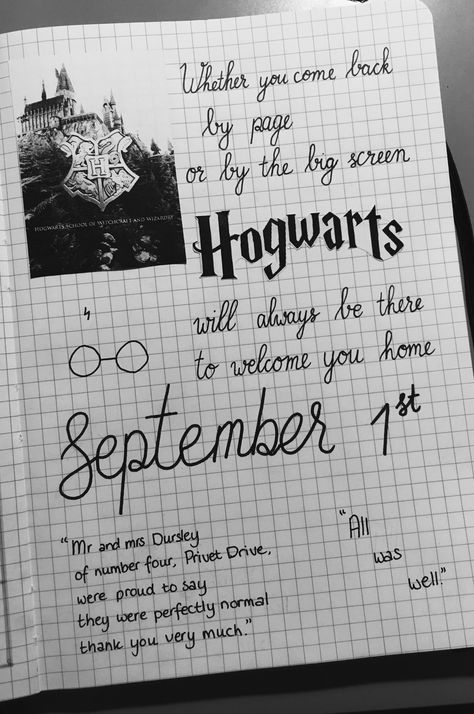 Whether you come back
by page
or by the big screen
H
HOGWARTS SCHOOL OF WITCHCRAFT AND WIZARDRY
Hogwarts
will always be there
to welcome you home
September 1st
"Mr and mrs Dursley
of number four, Privet Drive,
were proud to say
they were perfectly normal
thank you very much."
"All
was
well."